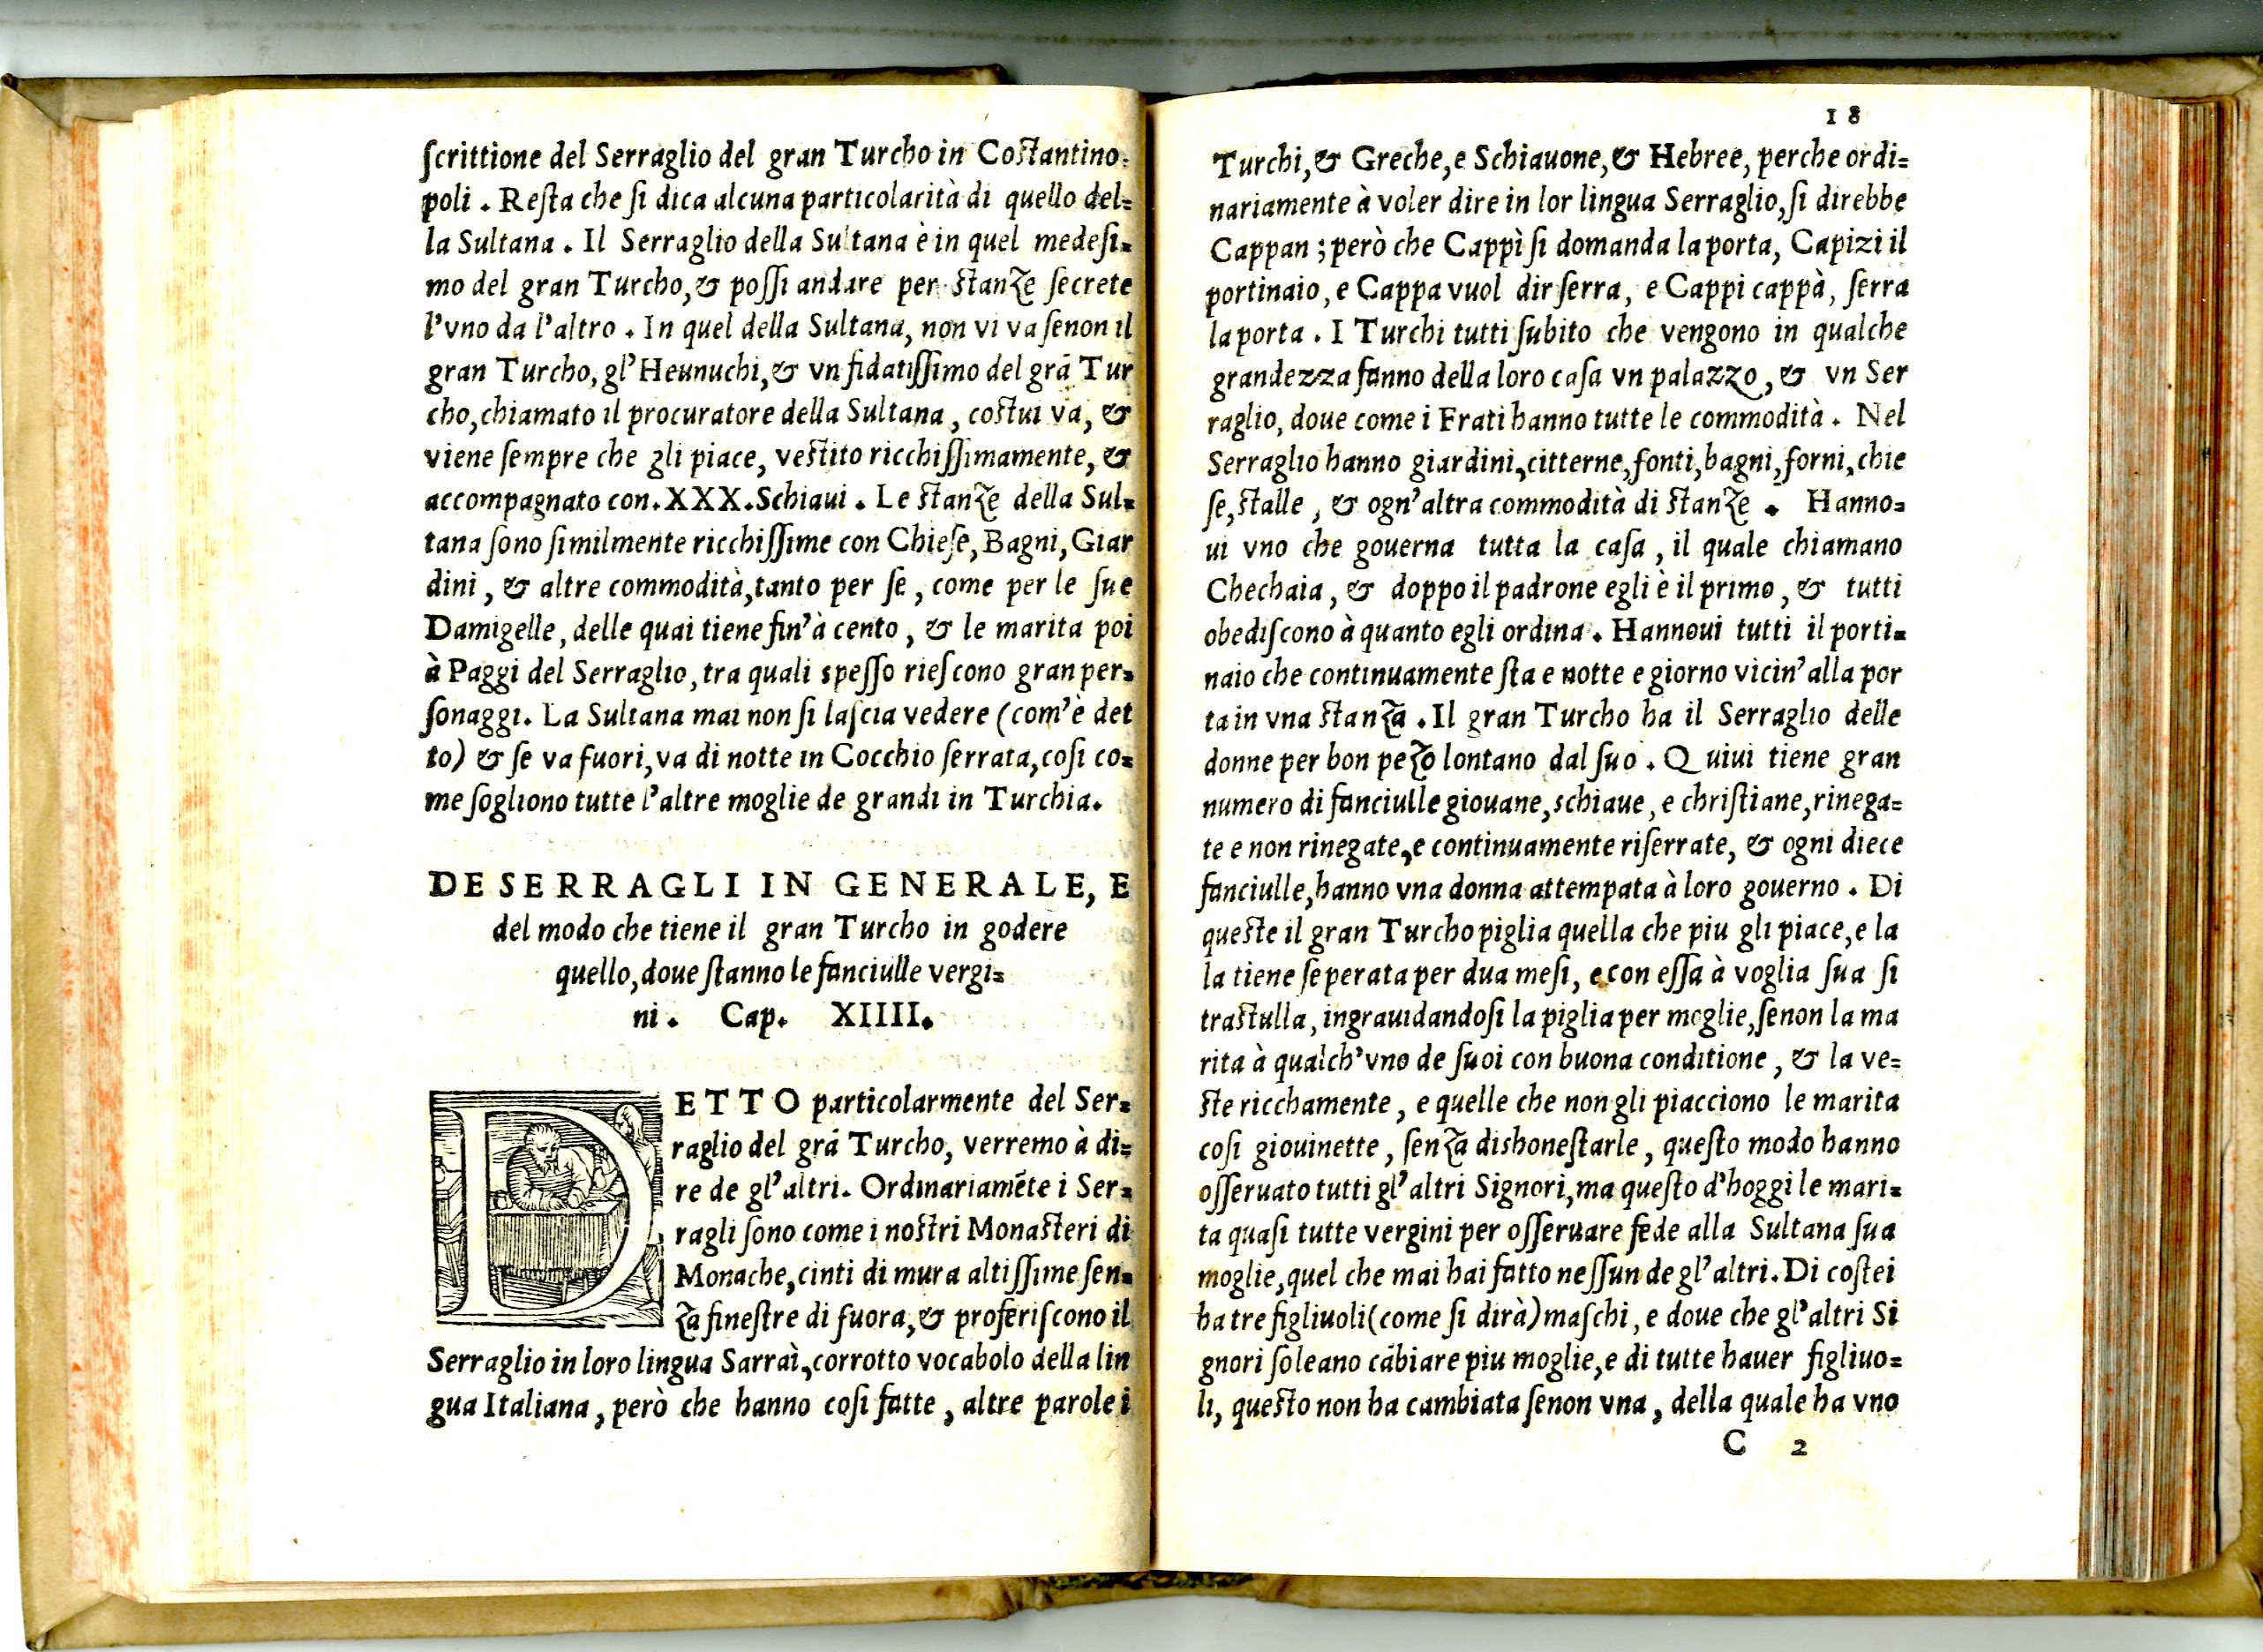 ſcrittione del Serraglio del gran Turcho in Coſtantino-
poli . Reſta che ſi dica alcuna particolarità di quello del-
la Sultana . Il Serraglio della Sultana è in quel medeſi-
mo del gran Turcho, & poſſi andare per ſtanze ſecrete
l'vno da l'altro . In quel della Sultana, non vi va ſenon il
gran Turcho, gl'Heunuchi, & vn fidatiſſimo del grā Tur
cho, chiamato il procuratore della Sultana, coſtui va, &
viene ſempre che gli piace, veſtito ricchiſſimamente, &
accompagnato con .XXX. Schiaui . Le ſtanze della Sul-
tana ſono ſimilmente ricchiſſime con Chieſe, Bagni, Giar
dini, & altre commodità, tanto per ſe, come per le ſue
Damigelle, delle quai tiene fin'à cento, & le marita poi
à Paggi del Serraglio, tra quali speſſo rieſcono gran per-
ſonaggi. La Sultana mai non ſi laſcia vedere (com'è det
to) & ſe va fuori, va di notte in Cocchio ſerrata, coſi co-
me ſogliono tutte l'altre moglie de grandi in Turchia.
DE SERRAGLI IN GENERALE, E
del modo che tiene il gran Turcho in godere
quello, doue ſtanno le fanciulle vergi-
ni . Cap. XIIII.
DETTO particolarmente del Ser-
raglio del grā Turcho, verremo à di-
re de gl'altri. Ordinariamēte i Ser-
ragli ſono come i noſtri Monaſteri di
Monache, cinti di mura altiſſime ſen-
za fineſtre di fuora, & proferiſcono il
Serraglio in loro lingua Sarraì, corrotto vocabolo della lin
gua Italiana, però che hanno coſi fatte, altre parole i
18
Turchi, & Greche, e Schiauone, & Hebree, perche ordi-
nariamente à voler dire in lor lingua Serraglio, ſi direbbe
Cappan ; però che Cappì ſi domanda la porta, Capizi il
portinaio, e Cappa vuol dir ſerra, e Cappi cappà, ſerra
la porta . I Turchi tutti ſubito che vengono in qualche
grandezza fanno della loro caſa vn palazzo, & vn Ser
raglio, doue come i Frati hanno tutte le commodità . Nel
Serraglio hanno giardini, citterne, fonti, bagni, forni, chie
ſe, ſtalle, & ogn'altra commodità di ſtanze . Hanno-
ui vno che gouerna tutta la caſa, il quale chiamano
Chechaia, & doppo il padrone egli è il primo, & tutti
obediſcono à quanto egli ordina . Hannoui tutti il porti-
naio che continuamente ſta e notte e giorno vicin'alla por
ta in vna ſtanza . Il gran Turcho ha il Serraglio delle
donne per bon pezo lontano dal ſuo . Quiui tiene gran
numero di fanciulle giouane, schiaue, e chriſtiane, rinega-
te e non rinegate, e continuamente riſerrate, & ogni diece
fanciulle, hanno vna donna attempata à loro gouerno . Di
queſte il gran Turcho piglia quella che piu gli piace, e la
la tiene ſeperata per dua meſi, e con eſſa à voglia ſua ſi
traſtulla, ingrauidandoſi la piglia per moglie, ſenon la ma
rita à qualch'vno de ſuoi con buona conditione, & la ve-
ſte ricchamente, e quelle che non gli piacciono le marita
coſi giouinette, ſenza dishoneſtarle, queſto modo hanno
oſſeruato tutti gl'altri Signori, ma queſto d'hoggi le mari-
ta quaſi tutte vergini per oſſeruare fede alla Sultana ſua
moglie, quel che mai hai fatto neſſun de gl'altri. Di coſtei
ha tre figliuoli (come ſi dirà) maſchi, e doue che gl'altri Si
gnori ſoleano cābiare piu moglie, e di tutte hauer figliuo-
li, queſto non ha cambiata ſenon vna, della quale ha vno
C 2